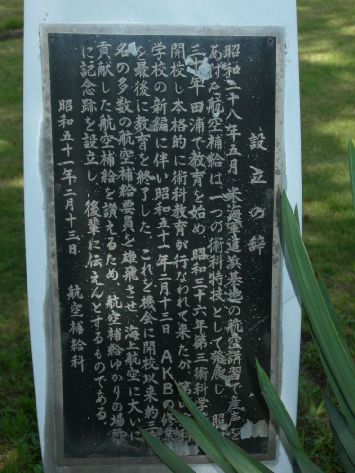 設立の辞
昭和二十八年五月 米海軍追浜基地の航空講習で産声を
あげた航空補給は、一つの術科特技として発展し 昭和
三十年 田浦で教育を始め 昭和三十六年第三術科学
開校し本格的に術科教育が行なわれて来たが、第
学校の新編に伴い昭和五十一年二月十三日 AKBの修業
を最後に教育を終了した。これを機会に開校以来約三
名の多数の航空補給要員を雄飛させ 海上航空に大いに
貢献した航空補給を讃えるため 航空補給ゆかりの場所
に記念跡を設立し 後輩に伝えんとするものである
昭和五十一年二月十三日 航空補給科